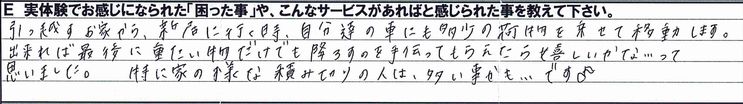 E 実体験でお感じになられた「困った事」や、こんなサービスがあればと感じられた事を教えて下さい。
引っ越すお家から、新居に行く時、自分達の車にも多少の荷物を乗せて移動します。
出来れば最後に重たい物だけでも降ろすのを手伝ってもらえたら嬉しいかな…って
思いました。 特に家の様な積み切りの人は、多い事かも…です